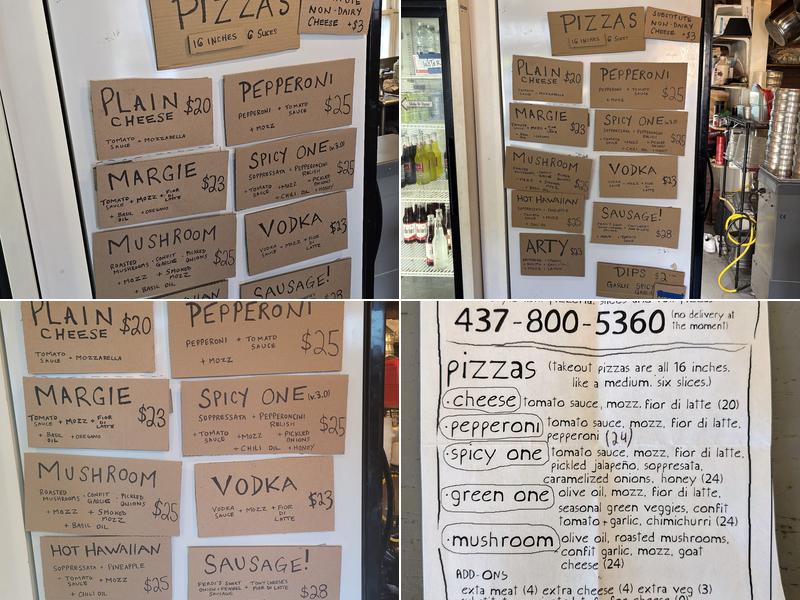 PIZZAS
16 INCHES 6 SLICES
SUBSTITUTE
NON-DAIRY
CHEESE +$3
PLAIN
CHEESE $20
TOMATO SAUCE + MOZZARELLA
PEPPERONI
PEPPERONI + TOMATO SAUCE
+ MOZZ
$25
MARGIE
TOMATO SAUCE + MOZZ + FIOR DI LATTE
+ BASIL OIL + OREGANO
$23
SPICY ONE (v.3.0)
SOPPRESSATA + PEPPERONCINI RELISH
+ TOMATO SAUCE + MOZZ + PICKLED ONIONS
+ CHILI OIL + HONEY
$25
MUSHROOM
ROASTED MUSHROOMS + CONFIT GARLIC + PICKLED ONIONS
+ MOZZ + SMOKED MOZZ
+ BASIL OIL
$25
VODKA
VODKA SAUCE + MOZZ + FIOR DI LATTE
$23
SAUSAGE!
$28
PIZZAS
16 INCHES 6 SLICES
SUBSTITUTE
NON-DAIRY
CHEESE +$3
PLAIN
CHEESE $20
TOMATO SAUCE + MOZZARELLA
PEPPERONI
PEPPERONI + TOMATO SAUCE
+ MOZZ
$25
MARGIE
$23
SPICY ONE
$25
MUSHROOM
$25
VODKA
$23
HOT HAWAIIAN
SOPPRESSATA + PINEAPPLE
$25
SAUSAGE!
$28
ARTY
$23
DIPS
GARLIC
PLAIN
CHEESE $20
TOMATO SAUCE + MOZZARELLA
PEPPERONI
PEPPERONI + TOMATO SAUCE
+ MOZZ
$25
MARGIE
TOMATO SAUCE + MOZZ + FIOR DI LATTE
+ BASIL OIL + OREGANO
$23
SPICY ONE (v.3.0)
SOPPRESSATA + PEPPERONCINI RELISH
+ TOMATO SAUCE + MOZZ + PICKLED ONIONS
+ CHILI OIL + HONEY
$25
MUSHROOM
ROASTED MUSHROOMS + CONFIT GARLIC + PICKLED ONIONS
+ MOZZ + SMOKED MOZZ
+ BASIL OIL
$25
VODKA
VODKA SAUCE + MOZZ + FIOR DI LATTE
$23
HOT HAWAIIAN
SOPPRESSATA + PINEAPPLE
+ TOMATO SAUCE + MOZZ
+ CHILI OIL
$25
SAUSAGE!
FERDI'S SWEET ONION + FENNEL SAUSAGE + TONY CHEESE'S FIOR DI LATTE
$28
437-800-5360 (no delivery at the moment)
pizzas (takeout pizzas are all 16 inches.
like a medium. six slices.)
·cheese tomato sauce, mozz, fior di latte (20)
·pepperoni tomato sauce, mozz, fior di latte,
pepperoni (24)
·spicy one tomato sauce, mozz, fior di latte,
pickled jalapeño, soppresata,
caramelized onions, honey (24)
·green one olive oil, mozz, fior di latte,
seasonal green veggies, confit
tomato + garlic, chimichurri (24)
·mushroom olive oil, roasted mushrooms,
confit garlic, mozz, goat
cheese (24)
ADD-ONS
exta meat (4) extra cheese (4) extra veg (3)